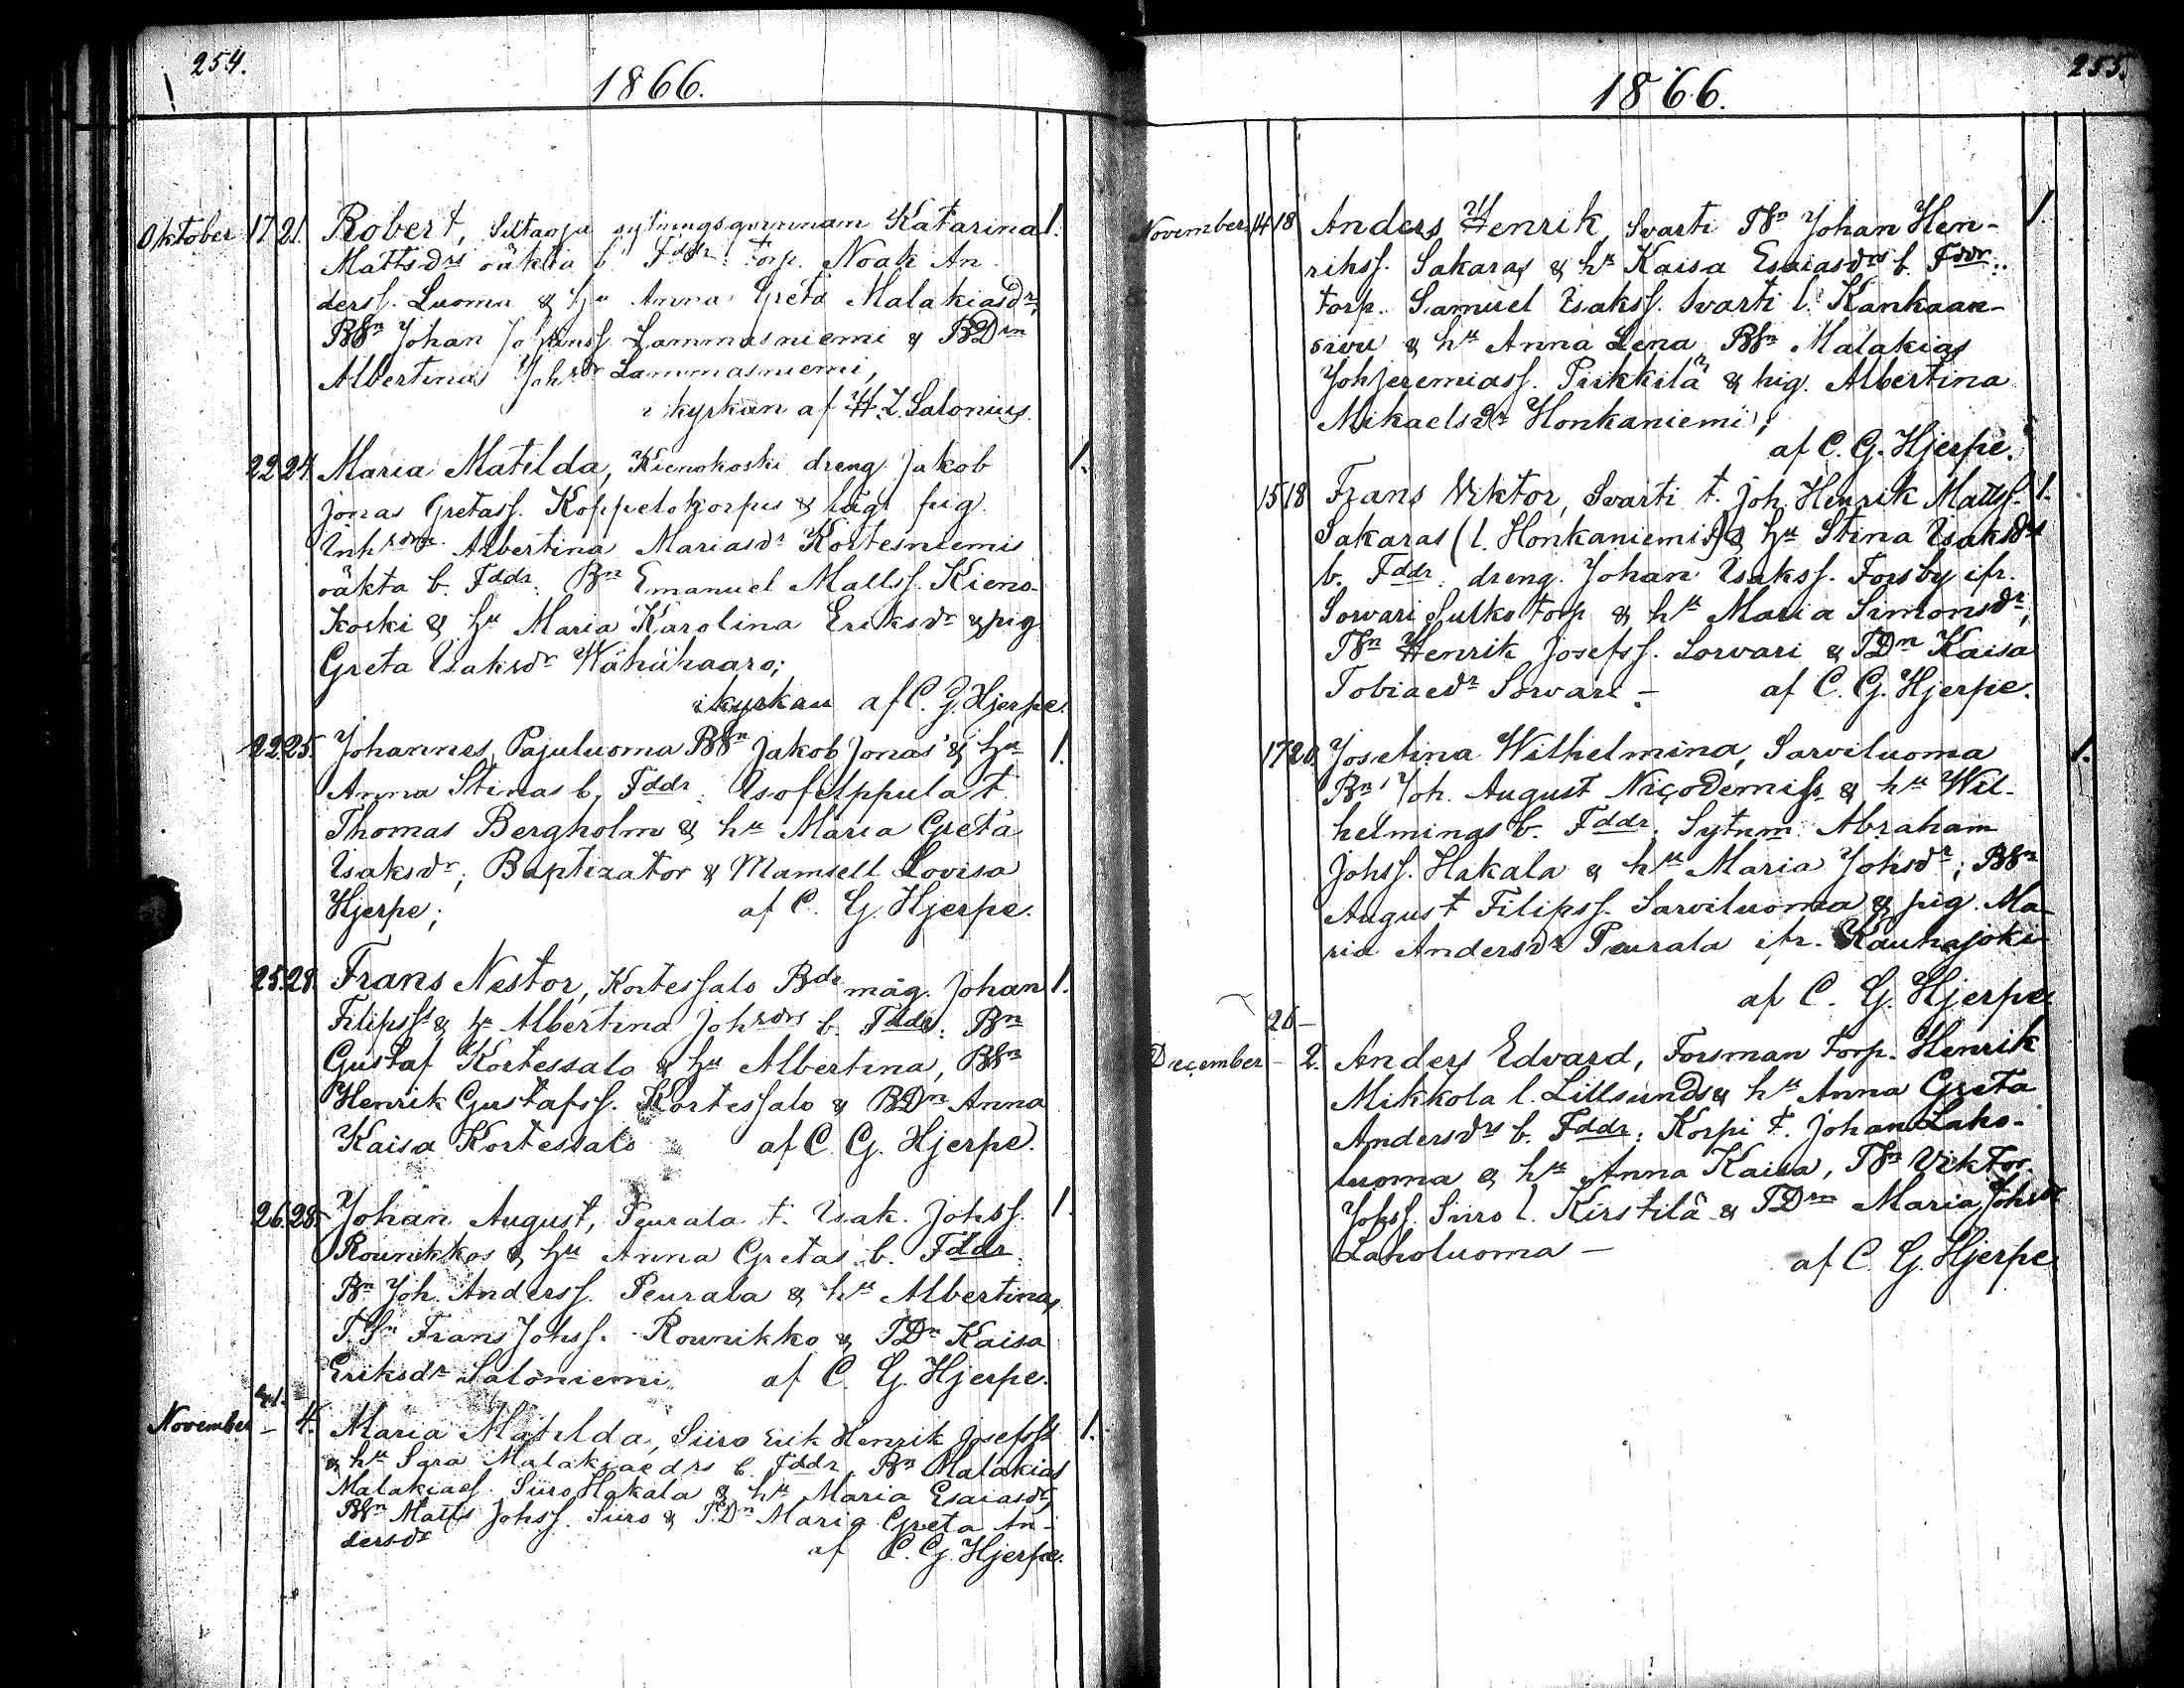 254.
1866.
Oktober 17 21. Robert, Siltaoja sytningsqvinnan Katarina 1.
Mattsdrs oäkta b. Fddr: torp. Noak An
derss. Luoma & hu Anna Greta Malakiasdr;
BSn Johan Johanss. Lammasniemi & BDrn
Albertina Johsdr Lammasniemi,
i kyrkan af H. L. Salonius.
22 24. Maria Matilda, Kienokoski dreng Jakob 1.
Jonas Gretass. Koppelokorpus & lägt pig.
Inhrdrs Albertina Mariasdr Kortesniemis
oäkta b. Fddr: Bn Emanuel Mattss. Kieno-
koski & hu Maria Karolina Eriksdr & pig
Greta Isaksdr Wähähaaro;
i kyrkan af C. G. Hjerpe.
22 25. Johannes, Pajuluoma BSn Jakob Jonas & hu 1.
Anna Stinas b. Fddr: Isofilppula t.
Thomas Bergholm & hu Maria Greta
Isaksdr; Baptizator & Mamsell Lovisa
Hjerpe; af C. G. Hjerpe.
25 28. Frans Nestor, Kortessalo Bdr måg. Johan 1.
Filipss & hu Albertina Johsdrs b. Fddr: Bn
Gustaf Kortessalo & hu Albertina, BSn
Henrik Gustafss. Kortessalo & BDn Anna
Kaisa Kortessalo af C. G. Hjerpe.
26 28. Johan August, Peurala t. Isak Johss. 1.
Rounikkos & hu Anna Gretas b. Fddr:
Bn Joh. Anderss. Peurala & hu Albertina,
T.Sn Frans Johss. Rounikko & TDn Kaisa
Eriksdr Saloniemi. af C. G. Hjerpe.
31. –
November – 4. Maria Matilda, Siiro Erik Henrik Josefss 1.
& hu Sara Malakiaedrs b. Fddr. Bn Malakias
Malakiaes. Siiro Hakala & hu Maria Esaiasdr,
BSn Matts Johss. Siiro & T.Dn Maria Greta An-
dersdr af C. G. Hjerpe.
255.
1866.
November 14 18 Anders Henrik, Svarti TSn Johan Hen- 1.
rikss. Sakaras & hu Kaisa Esaiasdrs b. Fddr:
torp. Samuel Isakss. Svarti l. Kankaan-
sivu & hu Anna Lena, BSn Malakias
Johjeremiass. Piikkilä & pig. Albertina
Mikaelsdr Honkaniemi;
af C. G. Hjerpe.
15 18 Frans Viktor, Svarti t. Joh. Henrik Mattss. 1.
Sakaras (l. Honkaniemis) & hu Stina Isaksdrs
b. Fddr: dreng. Johan Isakss. Forsby ifr.
Sorvari Sulko torp & hu Maria Simonsdr;
TSn Henrik Josefss. Sorvari & TDn Kaisa
Tobiaedr Sorvari – af C. G. Hjerpe.
17 20. Josefina Wilhelmina, Sarviluoma 1.
Bn Joh. August Nicodemiss & hu Wil-
helminas b. Fddr: Sytnm. Abraham
Johss. Hakala & hu Maria Johsdr; BSn
August Filipss. Sarviluoma & pig. Ma-
ria Andersdr Peurala ifr. Kauhajoki
af C. G. Hjerpe.
26 –
December – 2. Anders Edvard, Forsman torp. Henrik
Mikkola l. Lillsunds & hu Anna Greta
Andersdrs b. Fddr: Korpi t. Johan Laho-
luoma & hu Anna Kaisa, TSn Viktor
Johss. Siiro l. Kirstilä & TDrn Maria Johsdr
Laholuoma – af C. G. Hjerpe